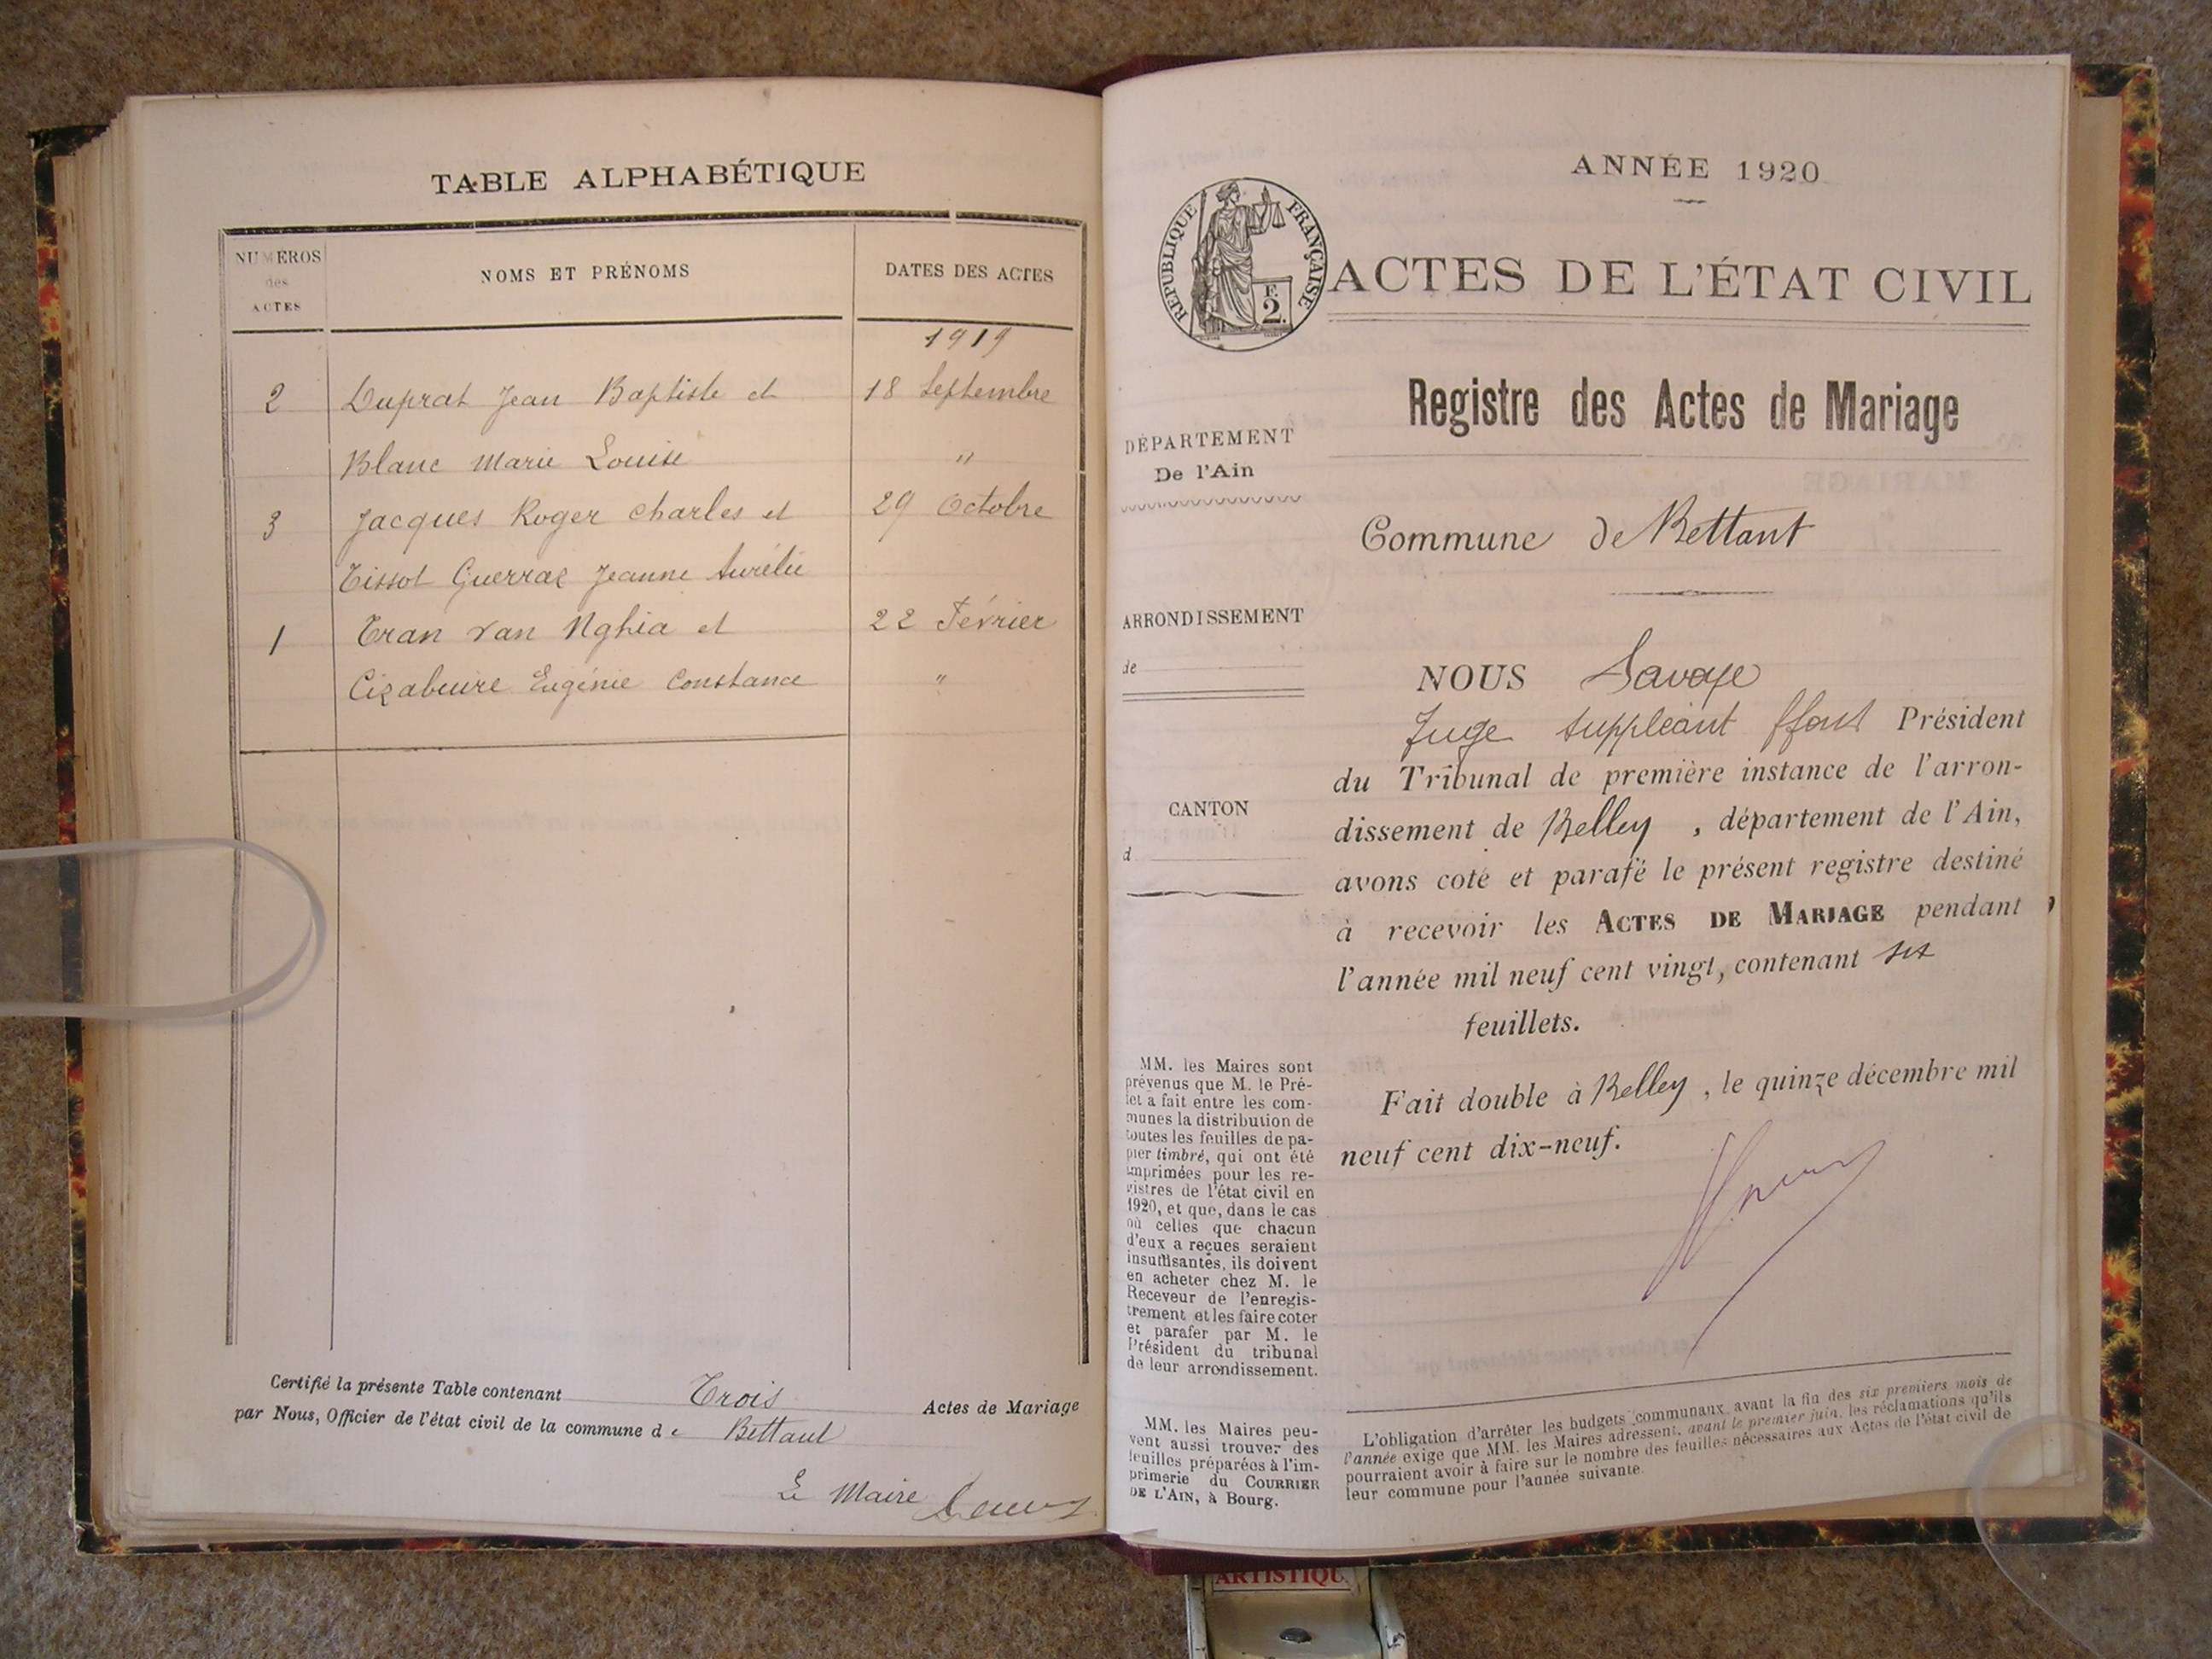 TABLE ALPHABÉTIQUE
NUMÉROS
des
ACTES
NOMS ET PRÉNOMS
DATES DES ACTES
1919
2 Duprat Jean Baptiste et 18 Septembre
Blanc Marie Louise "
3 Jacques Roger Charles et 29 Octobre
Tissot Guerraz Jeanne Aurélie
1 Tran Van Nghia et 22 Février
Cizabuire Eugénie Constance "
Certifié la présente Table contenant Trois Actes de Mariage
par Nous, Officier de l'état civil de la commune de Bettant
Le Maire
ANNÉE 1920
RÉPUBLIQUE FRANÇAISE
F.
2.
ACTES DE L'ÉTAT CIVIL
Registre des Actes de Mariage
DÉPARTEMENT
De l'Ain
Commune de Bettant
ARRONDISSEMENT
de
CANTON
d
NOUS Savoye
Juge suppléant ffont Président
du Tribunal de première instance de l'arron-
dissement de Belley, département de l'Ain,
avons coté et parafé le présent registre destiné
à recevoir les ACTES DE MARIAGE pendant
l'année mil neuf cent vingt, contenant six
feuillets.
Fait double à Belley, le quinze décembre mil
neuf cent dix-neuf.
MM. les Maires sont
prévenus que M. le Pré-
fet a fait entre les com-
munes la distribution de
toutes les feuilles de pa-
pier timbré, qui ont été
imprimées pour les re-
gistres de l'état civil en
1920, et que, dans le cas
où celles que chacun
d'eux a reçues seraient
insuffisantes, ils doivent
en acheter chez M. le
Receveur de l'enregis-
trement et les faire coter
et parafer par M. le
Président du tribunal
de leur arrondissement.
MM. les Maires peu-
vent aussi trouver des
feuilles préparées à l'im-
primerie du COURRIER
DE L'AIN, à Bourg.
L'obligation d'arrêter les budgets communaux avant la fin des six premiers mois de
l'année exige que MM. les Maires adressent, avant le premier juin, les réclamations qu'ils
pourraient avoir à faire sur le nombre des feuilles nécessaires aux Actes de l'état civil de
leur commune pour l'année suivante.
ARTISTIQU